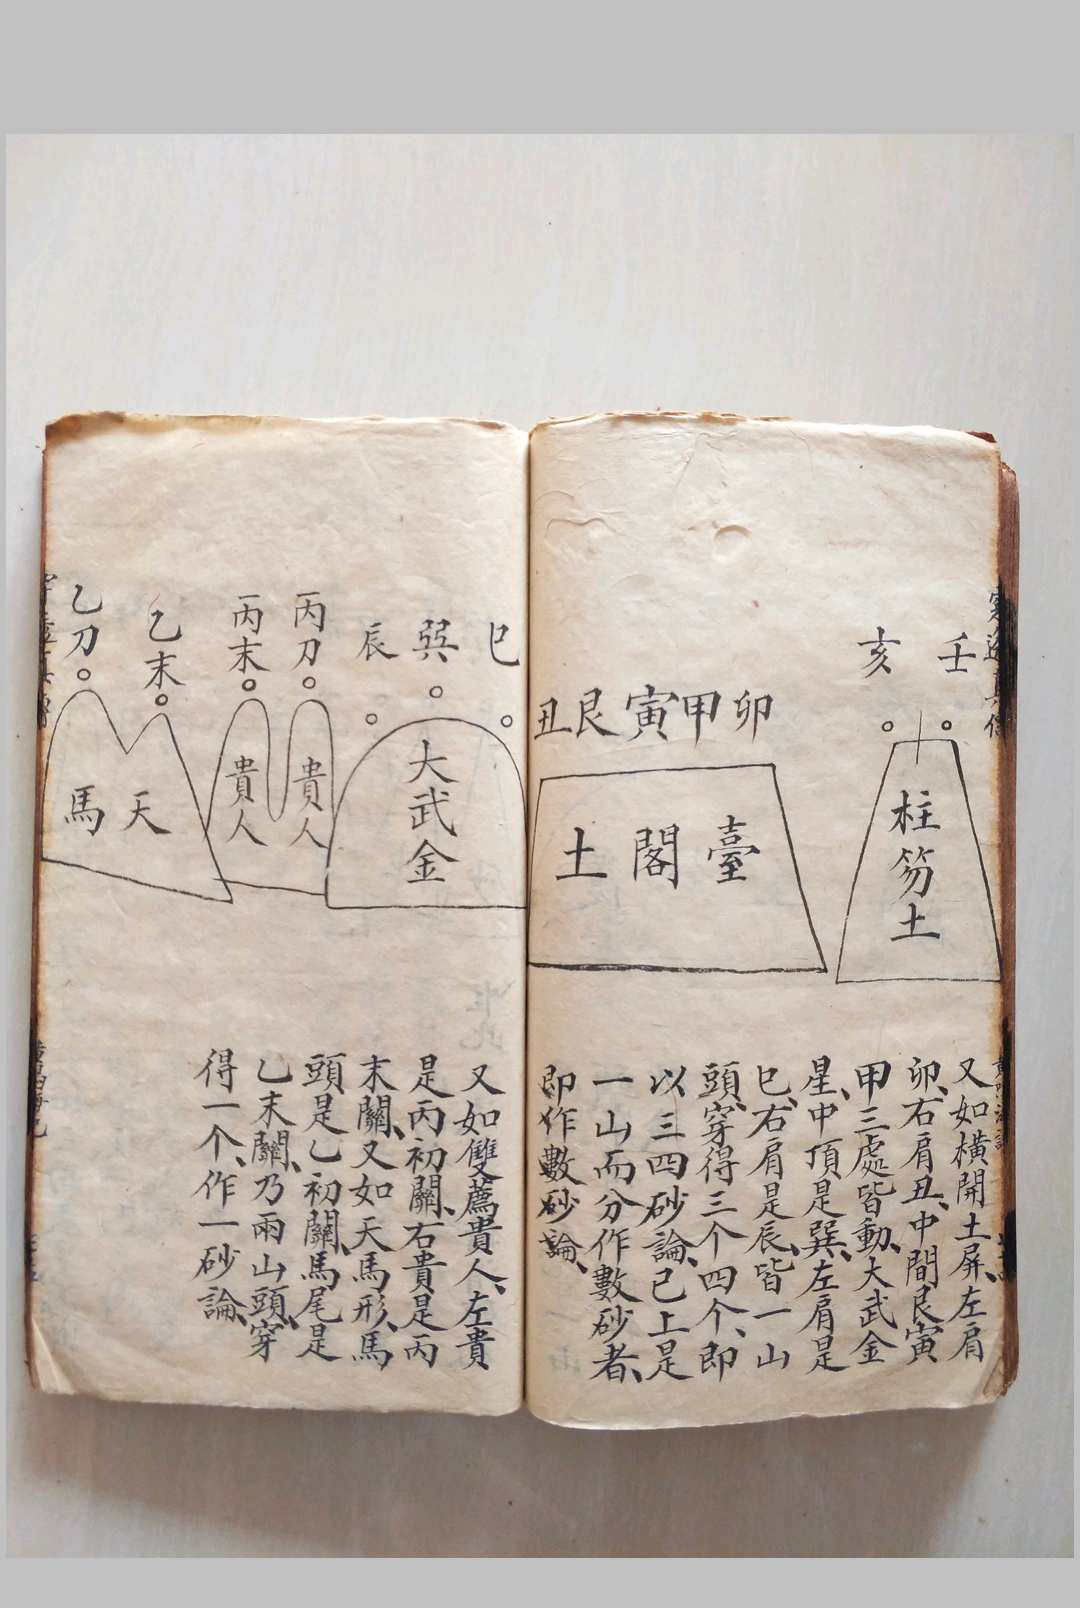 壬
亥
柱笏土
卯甲寅艮丑
臺閣土
又如橫開土屏、左肩
卯、右肩丑、中間艮寅
甲三處皆動、大武金
星、中頂是巽、左肩是
巳、右肩是辰、皆一山
頭、穿得三个四个、即
以三四砂論、已上是
一山而分作數砂者、
即作數砂論、
巳
巽
辰
大武金
丙刀
丙末
貴人
貴人
乙末
乙刀
天馬
又如雙薦貴人、左貴
是丙初關、右貴是丙
末關、又如天馬形、馬
頭是乙初關、馬尾是
乙末關、乃兩山頭、穿
得一个、作一砂論、